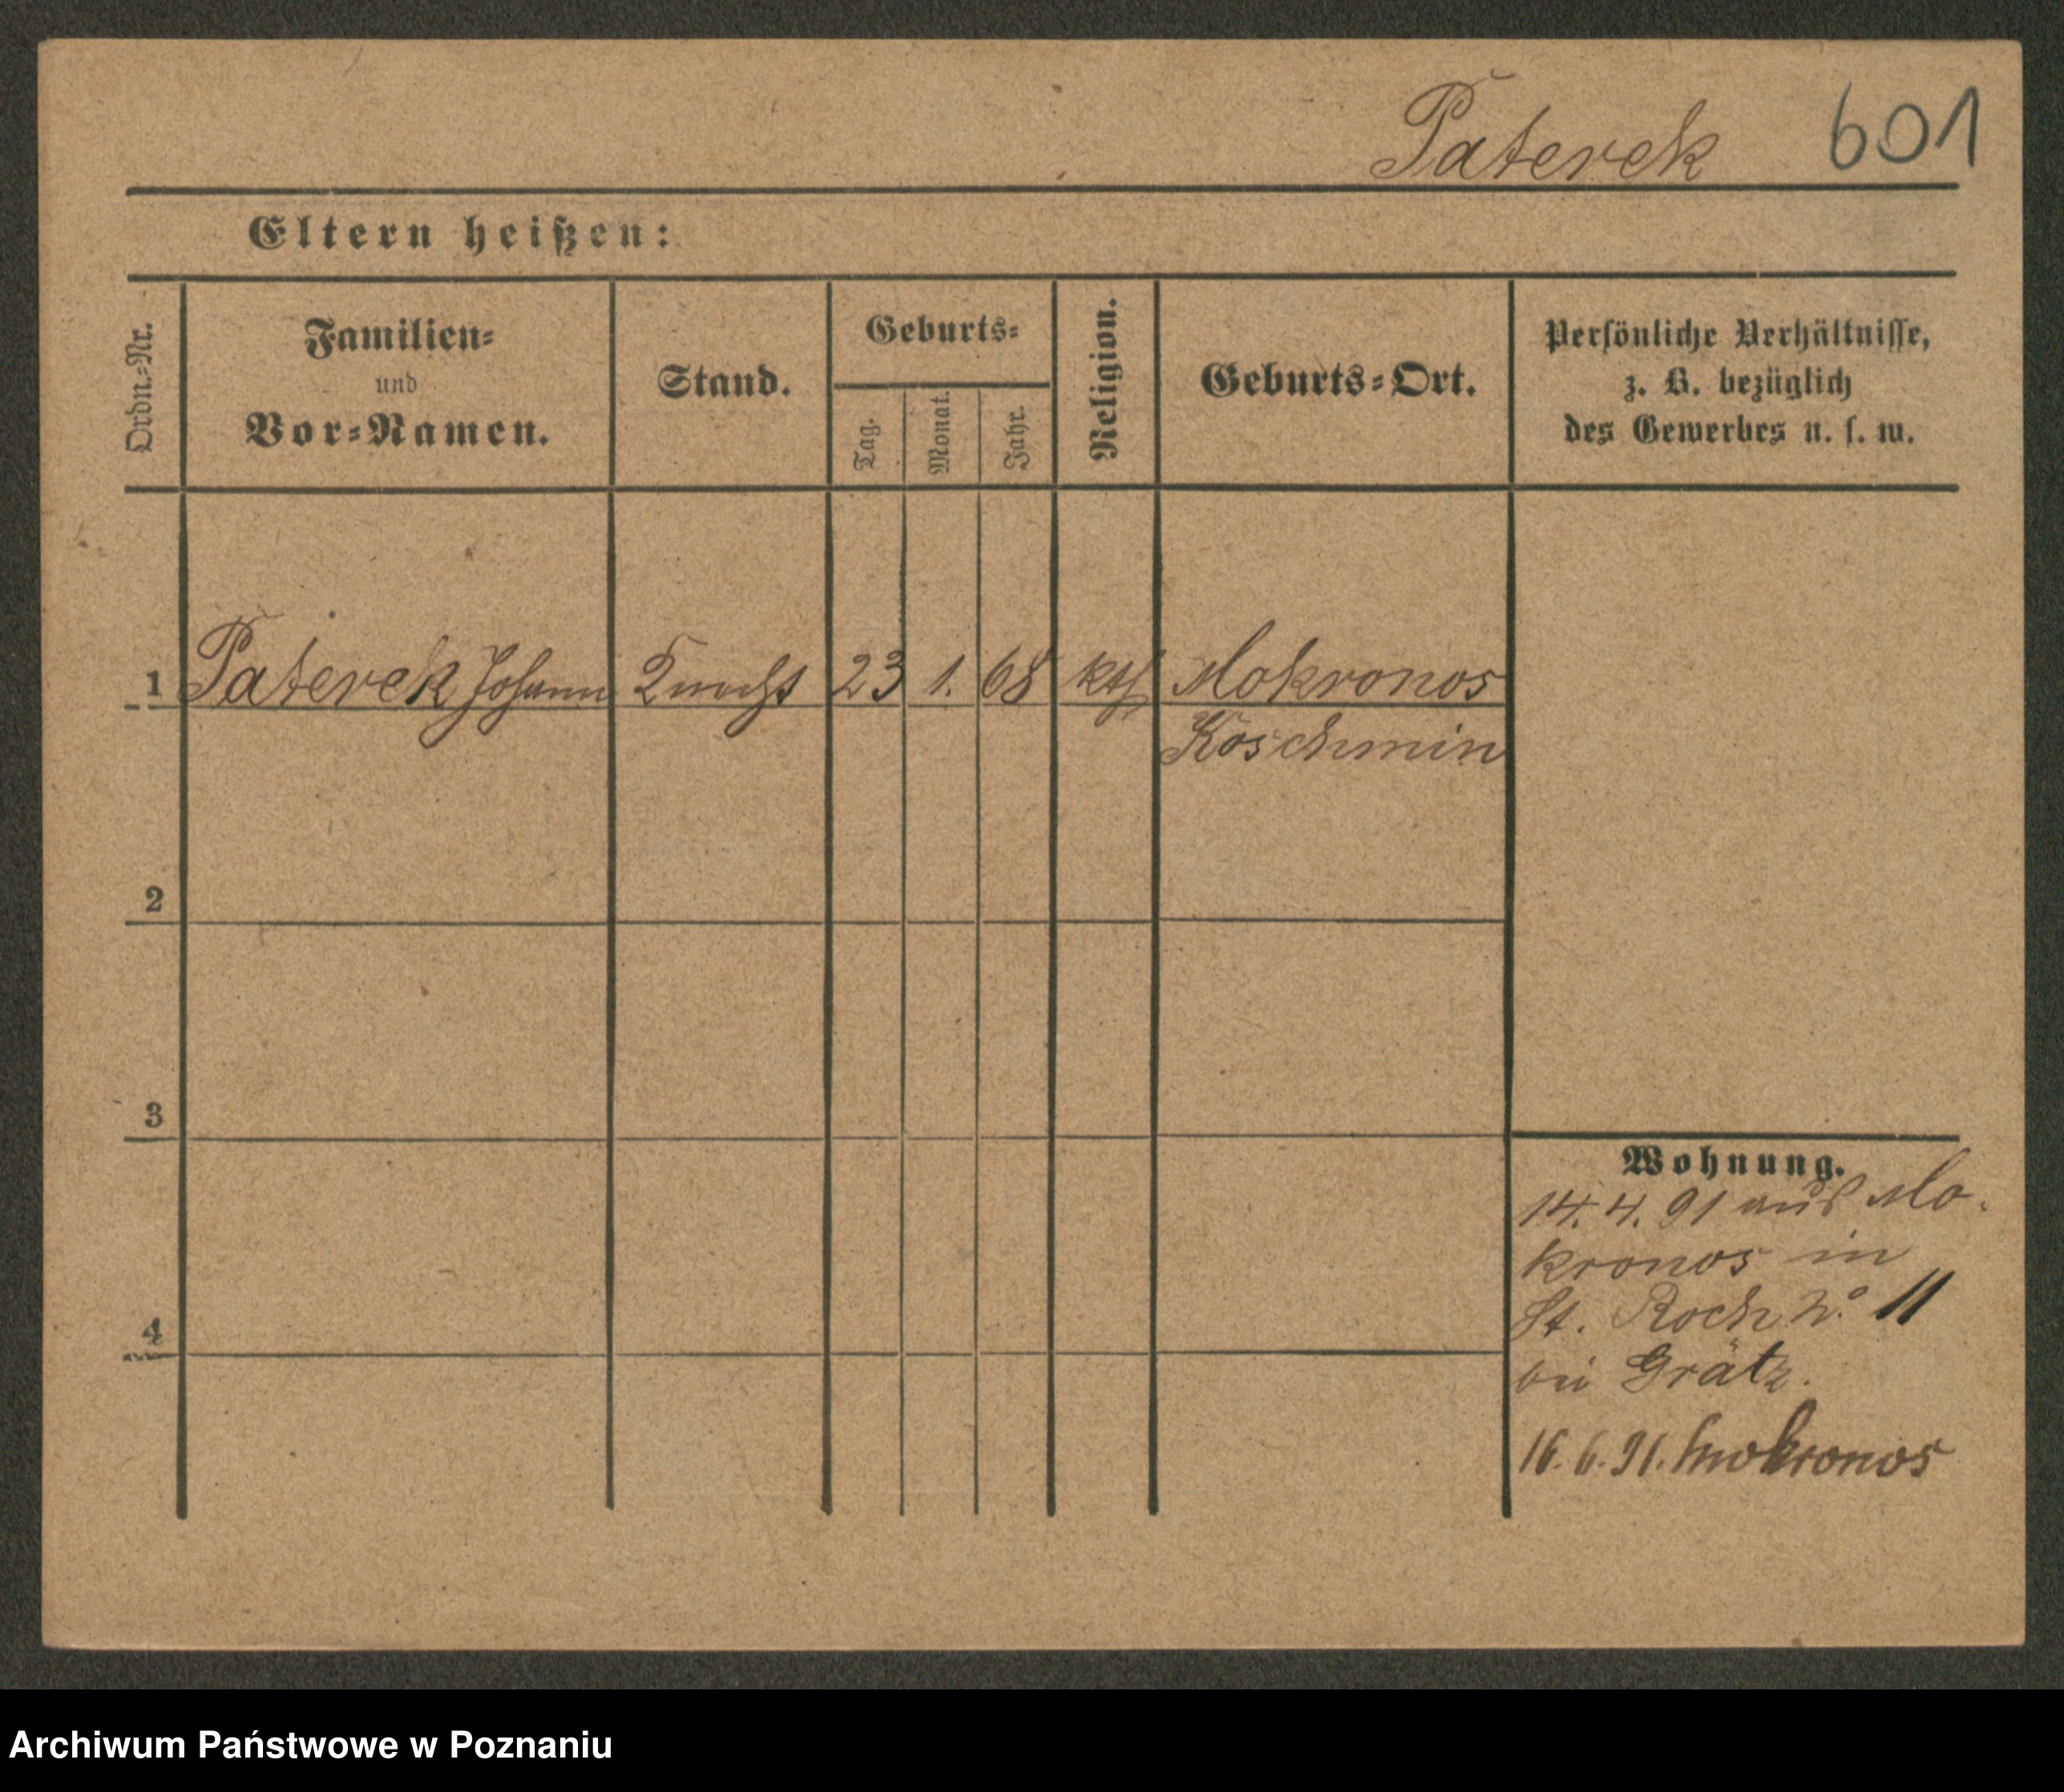 Paterek 601
Eltern heißen:
Ordn.-Nr.
Familien-
und
Vor-Namen.
Stand.
Geburts-
Tag.
Monat.
Jahr.
Religion.
Geburts-Ort.
Persönliche Verhältnisse,
z. B. bezüglich
des Gewerbes u. s. w.
1 Paterek Johann Knecht 23 1. 68 kth Mokronos
Koschmin
2
3
4
Wohnung.
14. 4. 91 aus Mo-
kronos in
St. Roch No 11
bei Grätz.
16. 6. 91. Mokronos
Archiwum Państwowe w Poznaniu